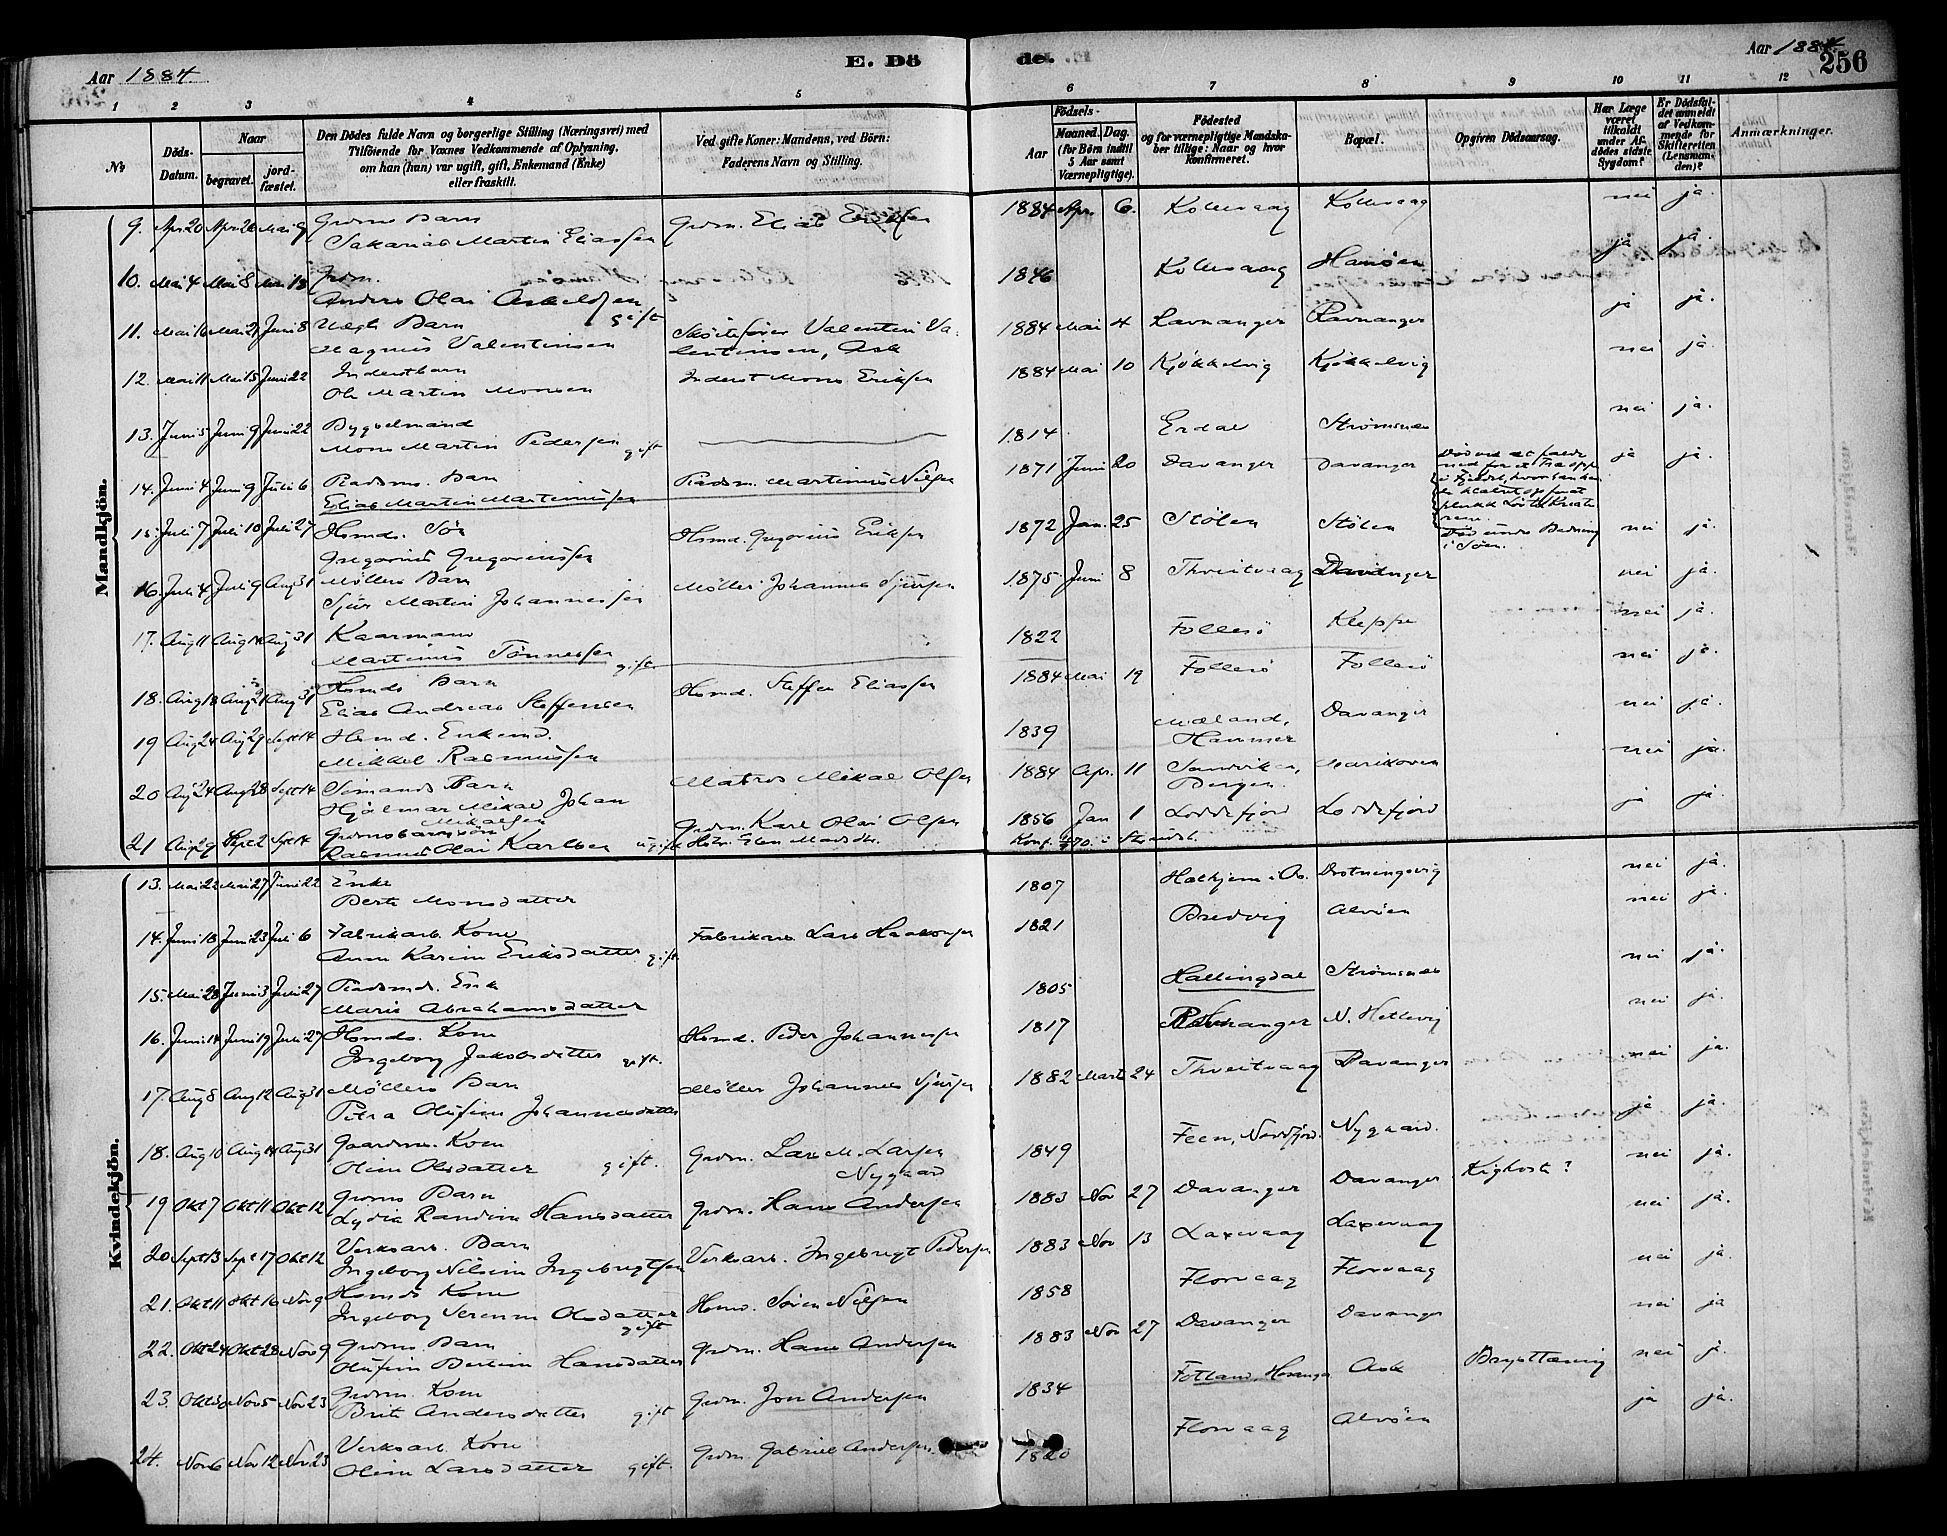 Aar 1884
E. Dö
de.
Aar 1884
256
1 2 3 4 5 6 7 8 9 10 11 12
No
Döds-Datum.
Naar
begravet.
jord-fæstet.
Den Dödes fulde Navn og borgerlige Stilling (Næringsvei) med
Tilföiende for Voxnes Vedkommende af Oplysning,
om han (hun) var ugift, gift, Enkemand (Enke)
eller fraskilt.
Ved gifte Koner: Mandens, ved Börn:
Faderens Navn og Stilling.
Födsels-
Aar
Maaned. Dag.
(for Börn indtil
5 Aar samt
Værnepligtige).
Födested
og for værnepligtige Mandska-
ber tillige: Naar og hvor
Konfirmeret.
Bopæl.
Opgiven Dödsaarsag.
Har Læge
været
tilkaldt
under Af-
dödes sidste
Sygdom?
Er Dödsfal-
det anmeldt
af Vedkom-
mende for
Skifteretten
(Lensman-
den)?
Anmærkninger.
Mandkjön.
9. Apr 20 Apr 26 Mai 9 Grdms Barn Grdm. Elias 1884 Apr. 6. nei ja.
Sakarias Martin Eliassen
10. Mai 4 Mai 8 Mai 18 Grdm. 1846 ja ja.
Anders Olai gift
11. Mai 16 Mai 21 Juni 8 Uægt Barn Valentin Va- 1884 Mai 4 Ravnanger Ravnanger ja ja.
Magnus Valentinsen lentinsen, Ask
12. Mai 11 Mai 15 Juni 22 Inderstbarn Inderst Mons Eriksen 1884 Mai 10 Kjøkkelvig Kjøkkelvig nei ja.
Ole Martin Monsen
13. Juni 5 Juni 9 Juni 22 1814 Erdal Strømsnes nei ja.
Mons Martin Pedersen gift
14. Juni 4 Juni 9 Juli 6 Pladsm. Barn Pladsm. Martinus Nilsen 1871 Juni 20 Davanger Davanger ja ja.
Elias Martin Martinussen
15. Juli 7 Juli 10 Juli 27 Hsmds. Søn Hsmd. Gregorius Eriksen 1872 Jan. 25 Stølen Stølen Død under Badning i Søen. nei ja.
Gregorius Gregoriussen
16. Juli 4 Juli 9 Aug 31 Møllers Barn Møller Johannes Sjursen 1875 Juni 8 Thveitvaag Davanger nei ja.
Sjur Martin Johannessen
17. Aug 11 Aug 14 Aug 31 Kaarmand 1822 Follesø Kleppe nei ja.
Martinus Tønnessen gift
18. Aug 18 Aug 21 Aug 31 Hsmds Barn Hsmd. Steffen Eliassen 1884 Mai 19 Follesø Follesø nei ja.
Elias Andreas Steffensen
19 Aug 24 Aug 29 Sept 14 Hsmd. Enkemd. 1839 Mæland, Hammer Davanger nei ja.
Mikkel Rasmussen
20 Aug 24 Aug 28 Sept 14 Sømands Barn Matros Mikal Olsen 1884 Apr. 11 Sandviken, Bergen. nei ja.
Hjalmar Mikal Johan
Mikalsen
21 Aug 29 Sept 2 Sept 14 Grdm. Karl Olai Olsen 1856 Jan 1 Loddefjord Loddefjord ja ja.
Rasmus Olai Karlsen ugift
Kvindekjön.
13. Mai 22 Mai 27 Juni 22 Enke 1807 nei ja.
Berta Monsdatter
14. Juni 18 Juni 23 Juli 6 Fabrikarb. Kone Fabrikarb. Lars Haakonsen 1821 Bredvig Alvøen nei ja.
Anna Karine Eriksdatter gift
15. Mai 28 Juni 3 Juli 27 Pladsmd. Enke 1805 Hallingdal Strømsnes nei ja.
Marie Abrahamsdatter
16. Juni 14 Juni 19 Juli 27 Hsmds. Kone Hsmd. Peder Johannessen 1817 N. Hetlevig nei ja.
Ingeborg Jakobsdatter gift.
17. Aug 8 Aug 12 Aug 31 Møllers Barn Møller Johannes Sjursen 1882 Mart 24 Thveitvaag Davanger nei ja.
Petra Olufine Johannesdatter
18. Aug 10 Aug 14 Aug 31 Gaardm. Kone Grdm. Lars M. Larsen 1849 Feen, Nordfjord. Nygaard. ja ja.
Oline Olsdatter gift. Nygaard
19 Okt 7 Okt 11 Okt 12 Grdms Barn Grdm. Hans Andersen 1883 Nov 27 Davanger Davanger Kighoste? nei ja.
Lydia Randine Hansdatter
20 Sept 13 Sept 17 Okt 12 Verksarb. Barn Verksarb. Ingebrigt Pedersen 1883 Nov 13 Laxevaag Laxevaag nei ja.
Ingeborg Nilsine Ingebrigtsen
21. Okt 11 Okt 16 Nov 9 Hsmds Kone Hsmd. Søren Nilsen 1858 Florvaag Florvaag nei ja.
Ingeborg Serine Olsdatter gift
22. Okt 24 Okt 28 Nov 9 Grdms Barn Grdm. Hans Andersen 1883 Nov 27 Davanger Davanger nei ja
Olufine Hansdatter
23. Okt Nov 5 Nov 23 Grdm. Kone Grdm. Jon Andersen 1834 Fotland, Hosanger Ask Brysttæring nei ja.
Brita Andersdatter gift
24. Nov 6 Nov 12 Nov 23 Verksarb. Kone Grdm. Gabriel Andersen. 1820 Florvaag Alvøen ja ja.
Oline Larsdatter gift